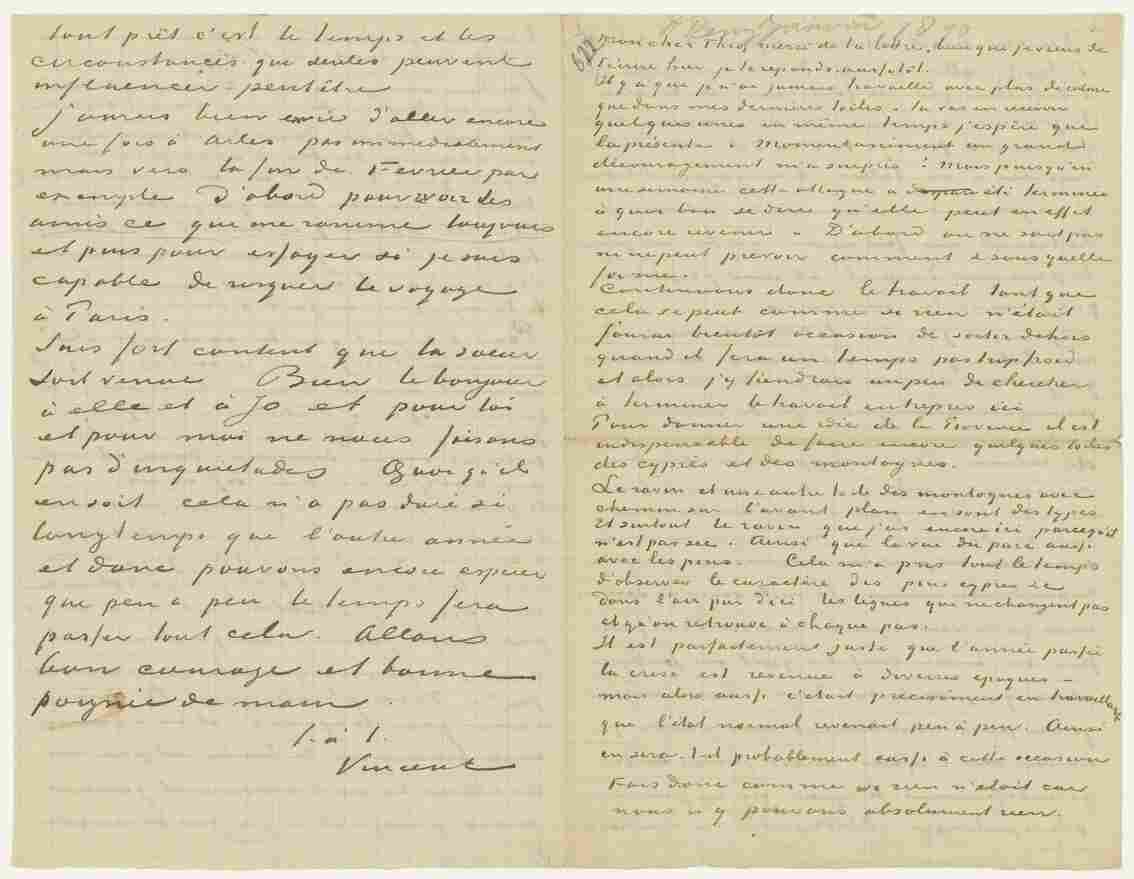 tout prêt c'est le temps et les
circonstances qui seules peuvent
influencer peutêtre
J'aurais bien envie d'aller encore
une fois à Arles pas immediatement
mais vers la fin de Fevrier par
exemple D'abord pour voir des
amis ce que me ranime toujours
et puis pour essayer si je suis
capable de risquer le voyage
à Paris.
Suis fort content que la soeur
soit venue Bien le bonjour
à elle et à Jo et pour toi
et pour moi ne nous faisons
pas d'inquietudes Quoiqu'il
en soit cela n'a pas duré si
longtemps que l'autre année
et donc pouvons encore esperer
que peu a peu le temps fera
passer tout cela. Allons
bon courage et bonne
poignée de main.
t. à t.
Vincent
St Remy Janvier 1890
622
Mon cher Theo, merci de ta lettre, bien que je viens de
t'écrire hier je te reponds aussitôt.
Il y a que je n'ai jamais travaillé avec plus de calme
que dans mes dernieres toiles - tu vas en recevoir
quelques unes en même temps j'espère que
la présente. Momentanément un grand
découragement m'a surpris. Mais puisqu'en
une semaine cette attaque a été terminée
à quoi bon se dire qu'elle peut en effet
encore revenir. D'abord on ne sait pas
ni ne peut prevoir comment & sous quelle
forme.
Continuons donc le travail tant que
cela se peut comme si rien n'était
J'aurai bientôt occasion de sortir dehors
quand il fera un temps pas trop froid
et alors j'y tiendrais un peu de chercher
à terminer le travail entrepris ici
Pour donner une idée de la Provence il est
indispensable de faire encore quelques toiles
des cyprès et des montagnes.
Le ravin et une autre toile des montagnes avec
chemin sur l'avant plan en sont des types
Et surtout le ravin que j'ai encore ici parcequ'il
n'est pas sec. Ainsi que la vue du parc aussi
avec les pins. Cela m'a pris tout le temps
d'observer le caractère des pins cyprès &c
dans l'air pur d'ici les lignes qui ne changent pas
et qu'on retrouve à chaque pas.
Il est parfaitement juste que l'année passée
la crise est revenue à diverses epoques –
mais alors aussi c'était précisément en travaillant
que l'état normal revenait peu à peu. Ainsi
en sera-t-il probablement aussi à cette occasion
Fais donc comme si rien n'etait car
nous n'y pouvons absolument rien.